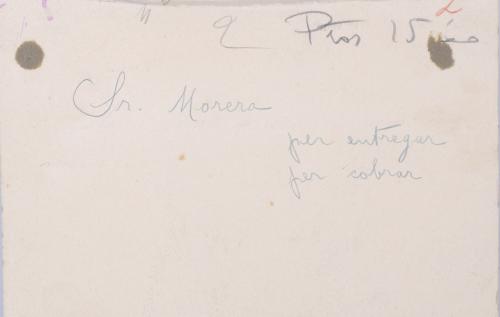 Ptas 15
Sr. Morera
per entregar
per cobrar